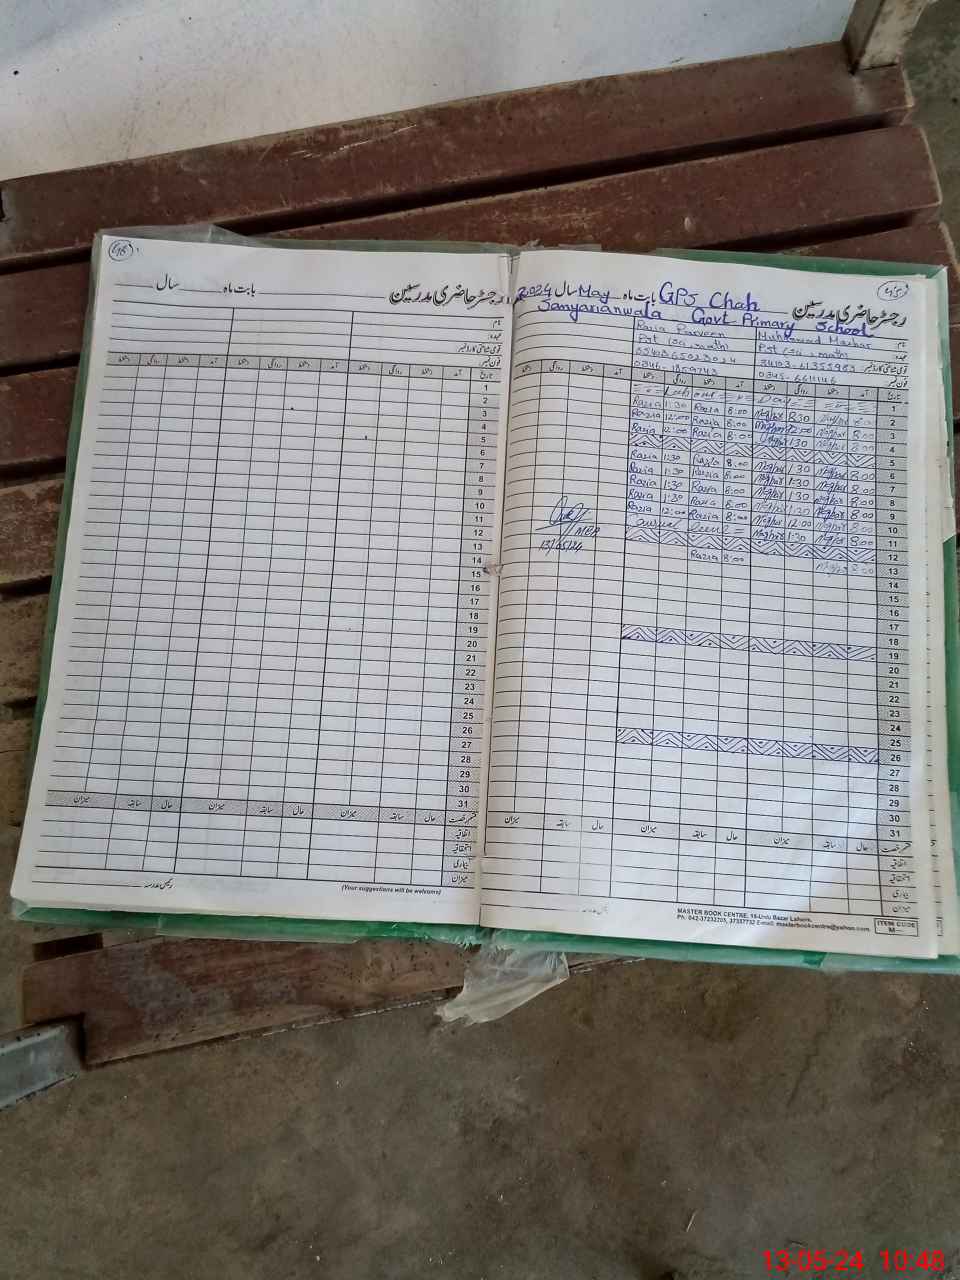 رجسٹر حاضری مدرسین
بابت ماہ سال
نام
عہدہ
قومی شناختی کارڈ نمبر
فون نمبر
تاریخ آمد دستخط روانگی دستخط آمد دستخط روانگی دستخط آمد دستخط روانگی دستخط
1
2
3
4
5
6
7
8
9
10
11
12
13
14
15
16
17
18
19
20
21
22
23
24
25
26
27
28
29
30
31
قسم رخصت حال سابقہ میزان حال سابقہ میزان حال سابقہ میزان
اتفاقیہ
استحقاقیہ
بیماری
میزان
رئیس مدرسہ
(Your suggestions will be welcome)
رجسٹر حاضری مدرسین GPS Chah بابت ماہ May سال 2024
Sanyarianwala Govt Primary School
نام Muhammad Mazhar Razia Parveen
عہدہ
قومی شناختی کارڈ نمبر
فون نمبر 0345-6611146
تاریخ آمد دستخط روانگی دستخط آمد دستخط روانگی دستخط آمد روانگی دستخط
1
2 8:00 Razia 8:00 Razia 1:30
3 8:00 12:00 Razia 8:00 Razia 12:00
4 8:00 1:30 Razia 8:00 Razia 12:00
5
6 8:00 1:30 Razia 8:00 Razia 1:30
7 8:00 1:30 Razia 8:00 Razia 1:30
8 8:00 1:30 Razia 8:00 Razia 1:30
9 8:00 1:30 Razia 8:00 Razia 1:30
10 8:00 12:00 Razia 8:00 Razia 12:00
11 8:00 1:30
12
13 8:00 Razia 8:00
13/05/24
14
15
16
17
18
19
20
21
22
23
24
25
26
27
28
29
30
31
قسم رخصت حال سابقہ میزان حال سابقہ میزان حال سابقہ میزان
اتفاقیہ
استحقاقیہ
بیماری
میزان
رئیس مدرسہ
MASTER BOOK CENTRE, 16-Urdu Bazar Lahore.
Ph: 042-37232205, 37357732 E-mail: masterbookcentre@yahoo.com
ITEM CODE
M—
13-05-24 10:48